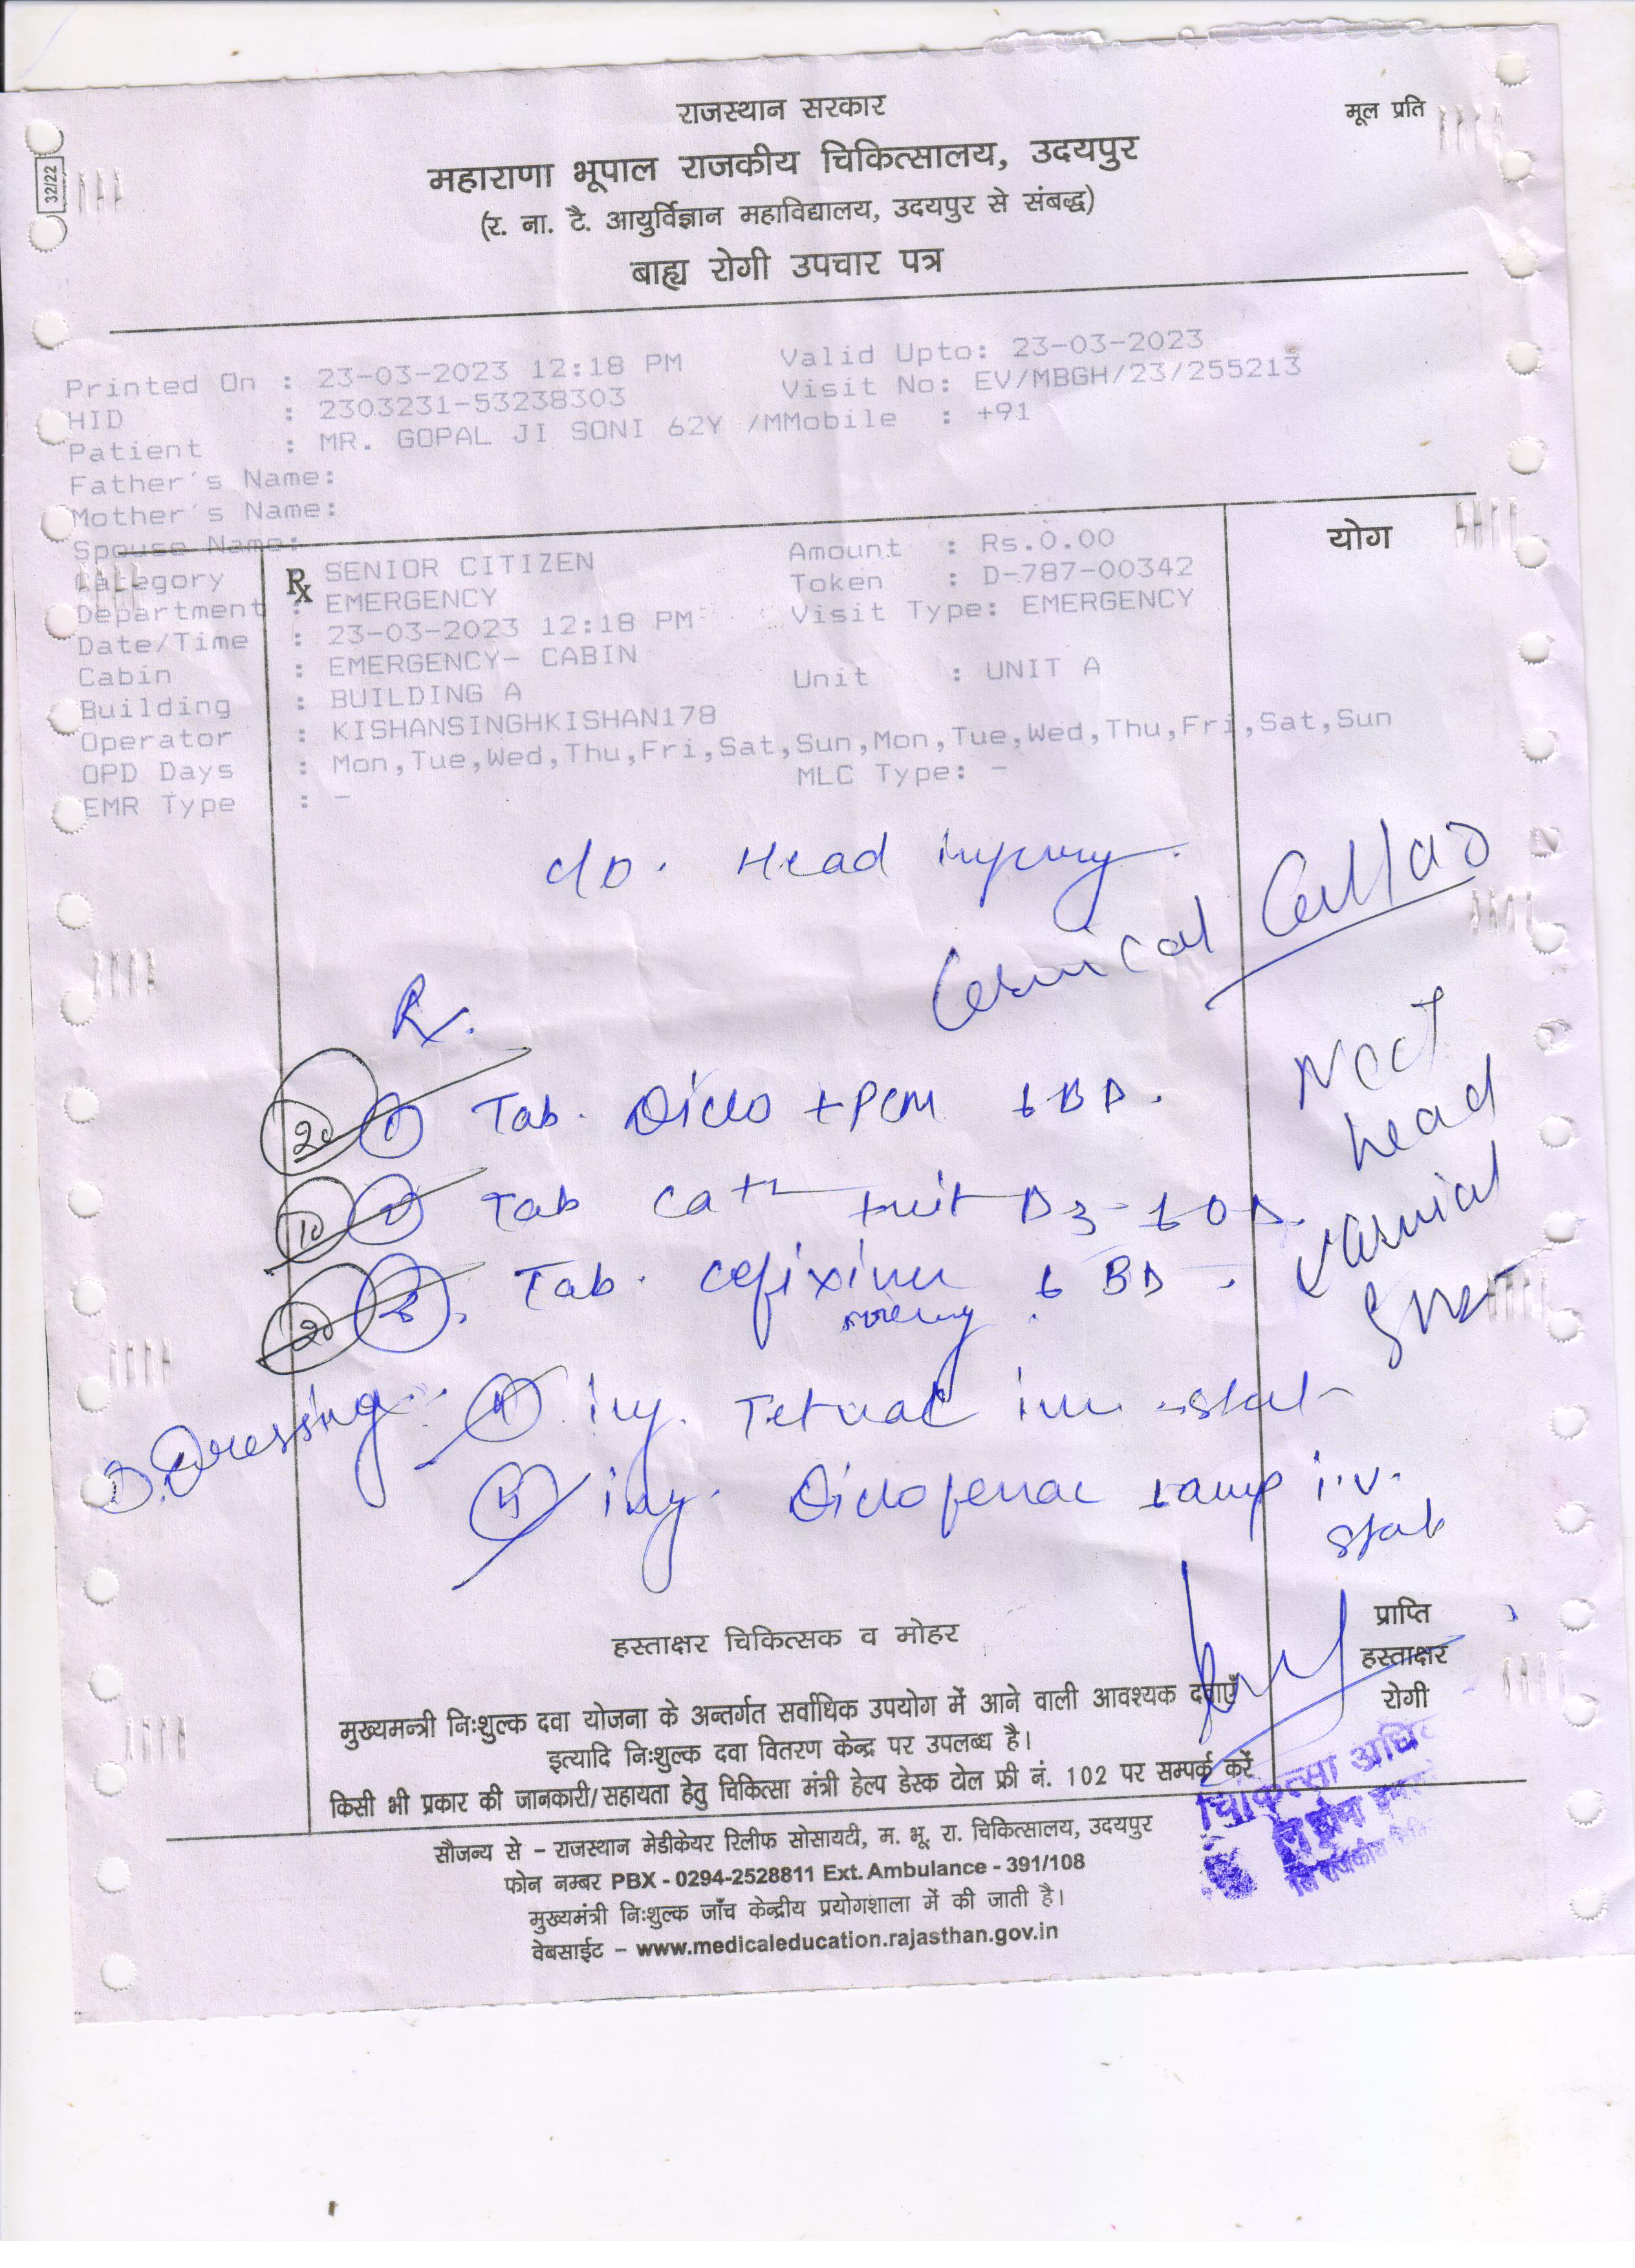 राजस्थान सरकार
मूल प्रति
महाराणा भूपाल राजकीय चिकित्सालय, उदयपुर
(र. ना. टै. आयुर्विज्ञान महाविद्यालय, उदयपुर से संबद्ध)
बाह्य रोगी उपचार पत्र
32/22
Printed On : 23-03-2023 12:18 PM Valid Upto: 23-03-2023
HID : 2303231-53238303 Visit No: EV/MBGH/23/255213
Patient : MR. GOPAL JI SONI 62Y /MMobile : +91
Father's Name:
Mother's Name:
Spouse Name:
योग
Category : SENIOR CITIZEN Amount : Rs.0.00
Rx
Department : EMERGENCY Token : D-787-00342
Date/Time : 23-03-2023 12:18 PM Visit Type: EMERGENCY
Cabin : EMERGENCY- CABIN
Building : BUILDING A Unit : UNIT A
Operator : KISHANSINGHKISHAN178
OPD Days : Mon,Tue,Wed,Thu,Fri,Sat,Sun,Mon,Tue,Wed,Thu,Fri,Sat,Sun
EMR Type : - MLC Type: -
c/o. Head injury.
Cervical Collar
Rx.
NCCT
head
20 1 Tab. Diclo + PCM 1 BD.
10 2 Tab Ca++ + vit D3 - 1 OD.
cervical
20 3. Tab. cefixime 1 BD -
spine
D. Dressing 4 inj. Tetvac im - stat
5 inj. Diclofenac 1 amp i.v.
stat
हस्ताक्षर चिकित्सक व मोहर
प्राप्ति
हस्ताक्षर
रोगी
मुख्यमन्त्री निःशुल्क दवा योजना के अन्तर्गत सर्वाधिक उपयोग में आने वाली आवश्यक दवाएँ
इत्यादि निःशुल्क दवा वितरण केन्द्र पर उपलब्ध है।
किसी भी प्रकार की जानकारी/सहायता हेतु चिकित्सा मंत्री हेल्प डेस्क टोल फ्री नं. 102 पर सम्पर्क करें
चिकित्सा
सौजन्य से – राजस्थान मेडीकेयर रिलीफ सोसायटी, म. भू. रा. चिकित्सालय, उदयपुर
फोन नम्बर PBX - 0294-2528811 Ext. Ambulance - 391/108
मुख्यमंत्री निःशुल्क जाँच केन्द्रीय प्रयोगशाला में की जाती है।
वेबसाईट – www.medicaleducation.rajasthan.gov.in